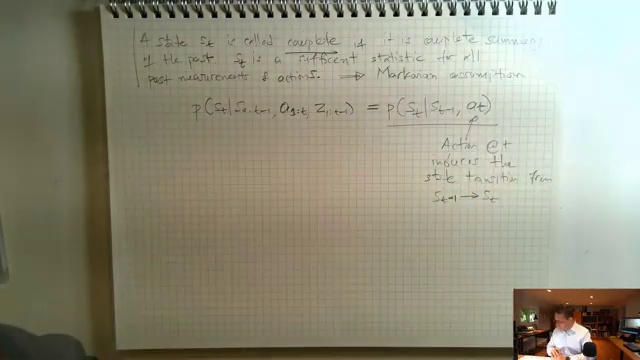 A state St is called complete if it is complete summary
of the past St is a sufficent statistic for all
past measurements & actions. ⟹ Markovian assumption
p(St|S0:t-1, a1:t, Z1:t-1) = p(St|St-1, at)
Action @ t
induces the
state transition from
St-1 → St